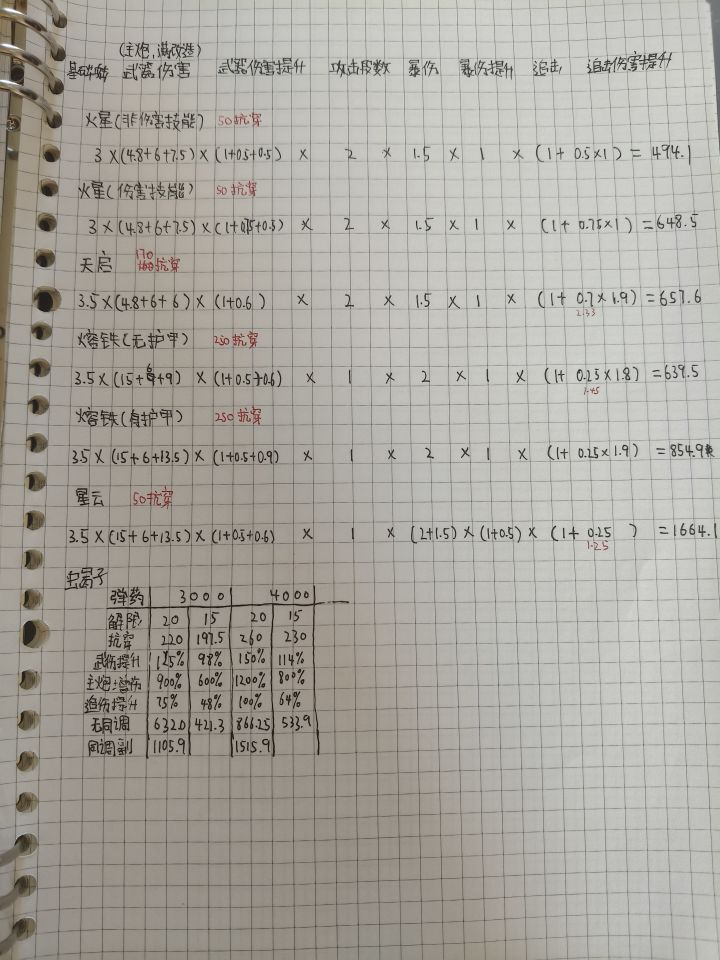 (主炮,满改造)
基础 武器伤害 武器伤害提升 攻击段数 暴伤 暴伤提升 追击 追击伤害提升
火星(非伤害技能) 50抗穿
3×(4.8+6+7.5)×(1+0.5+0.5) × 2 × 1.5 × 1 × (1+0.5×1)=494.1
火星(伤害技能) 50抗穿
3×(4.8+6+7.5)×(1+0.75+0.5) × 2 × 1.5 × 1 × (1+0.75×1)=648.5
天启 170抗穿
3.5×(4.8+6+6)×(1+0.6) × 2 × 1.5 × 1 × (1+0.7×1.9)=657.6
2.33
熔铁(无护甲) 250抗穿
3.5×(15+6+9)×(1+0.5+0.6) × 1 × 2 × 1 × (1+0.25×1.8)=639.5
1.45
熔铁(有护甲) 250抗穿
3.5×(15+6+13.5)×(1+0.5+0.9) × 1 × 2 × 1 × (1+0.25×1.9)=854.9
星云 50抗穿
3.5×(15+6+13.5)×(1+0.5+0.6) × 1 × (2+1.5)×(1+0.5)×(1+0.25 )=1664.1
1.25
虫蝎子
弹药 3000 4000
解限 20 15 20 15
抗穿 220 197.5 260 230
武伤提升 125% 98% 150% 114%
主炮增伤 900% 600% 1200% 800%
追伤提升 75% 48% 100% 64%
无同调 632.0 421.3 866.25 533.9
同调副 1105.9 1515.9